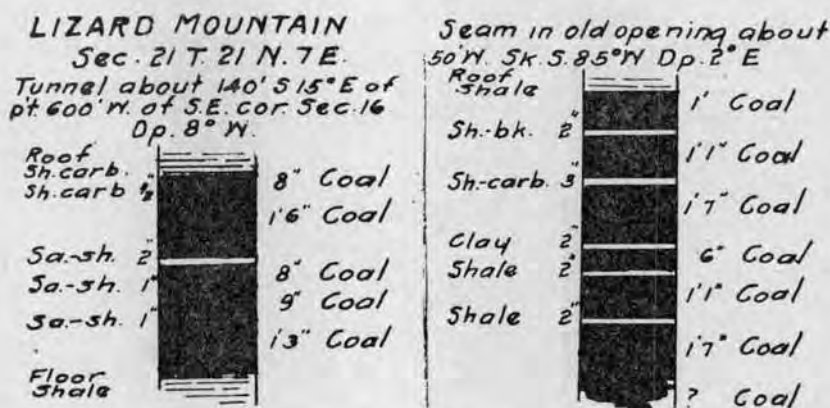 LIZARD MOUNTAIN
Sec. 21 T. 21 N. 7 E.
Tunnel about 140' S 15° E of
pt. 600' W. of S.E. cor. Sec. 16
Dp. 8° W.
Roof
Sh. carb.
Sh. carb ½"
8" Coal
1'6" Coal
Sa.-sh. 2"
8" Coal
Sa.-sh. 1"
9" Coal
Sa.-sh. 1"
1'3" Coal
Floor
Shale
Seam in old opening about
50' W. Sk. S. 85° W Dp. 2° E
Roof
Shale
1' Coal
Sh.-bk. 2"
1'1" Coal
Sh.-carb. 3"
1'7" Coal
Clay 2"
6" Coal
Shale 2"
1'1" Coal
Shale 2"
1'7" Coal
? Coal